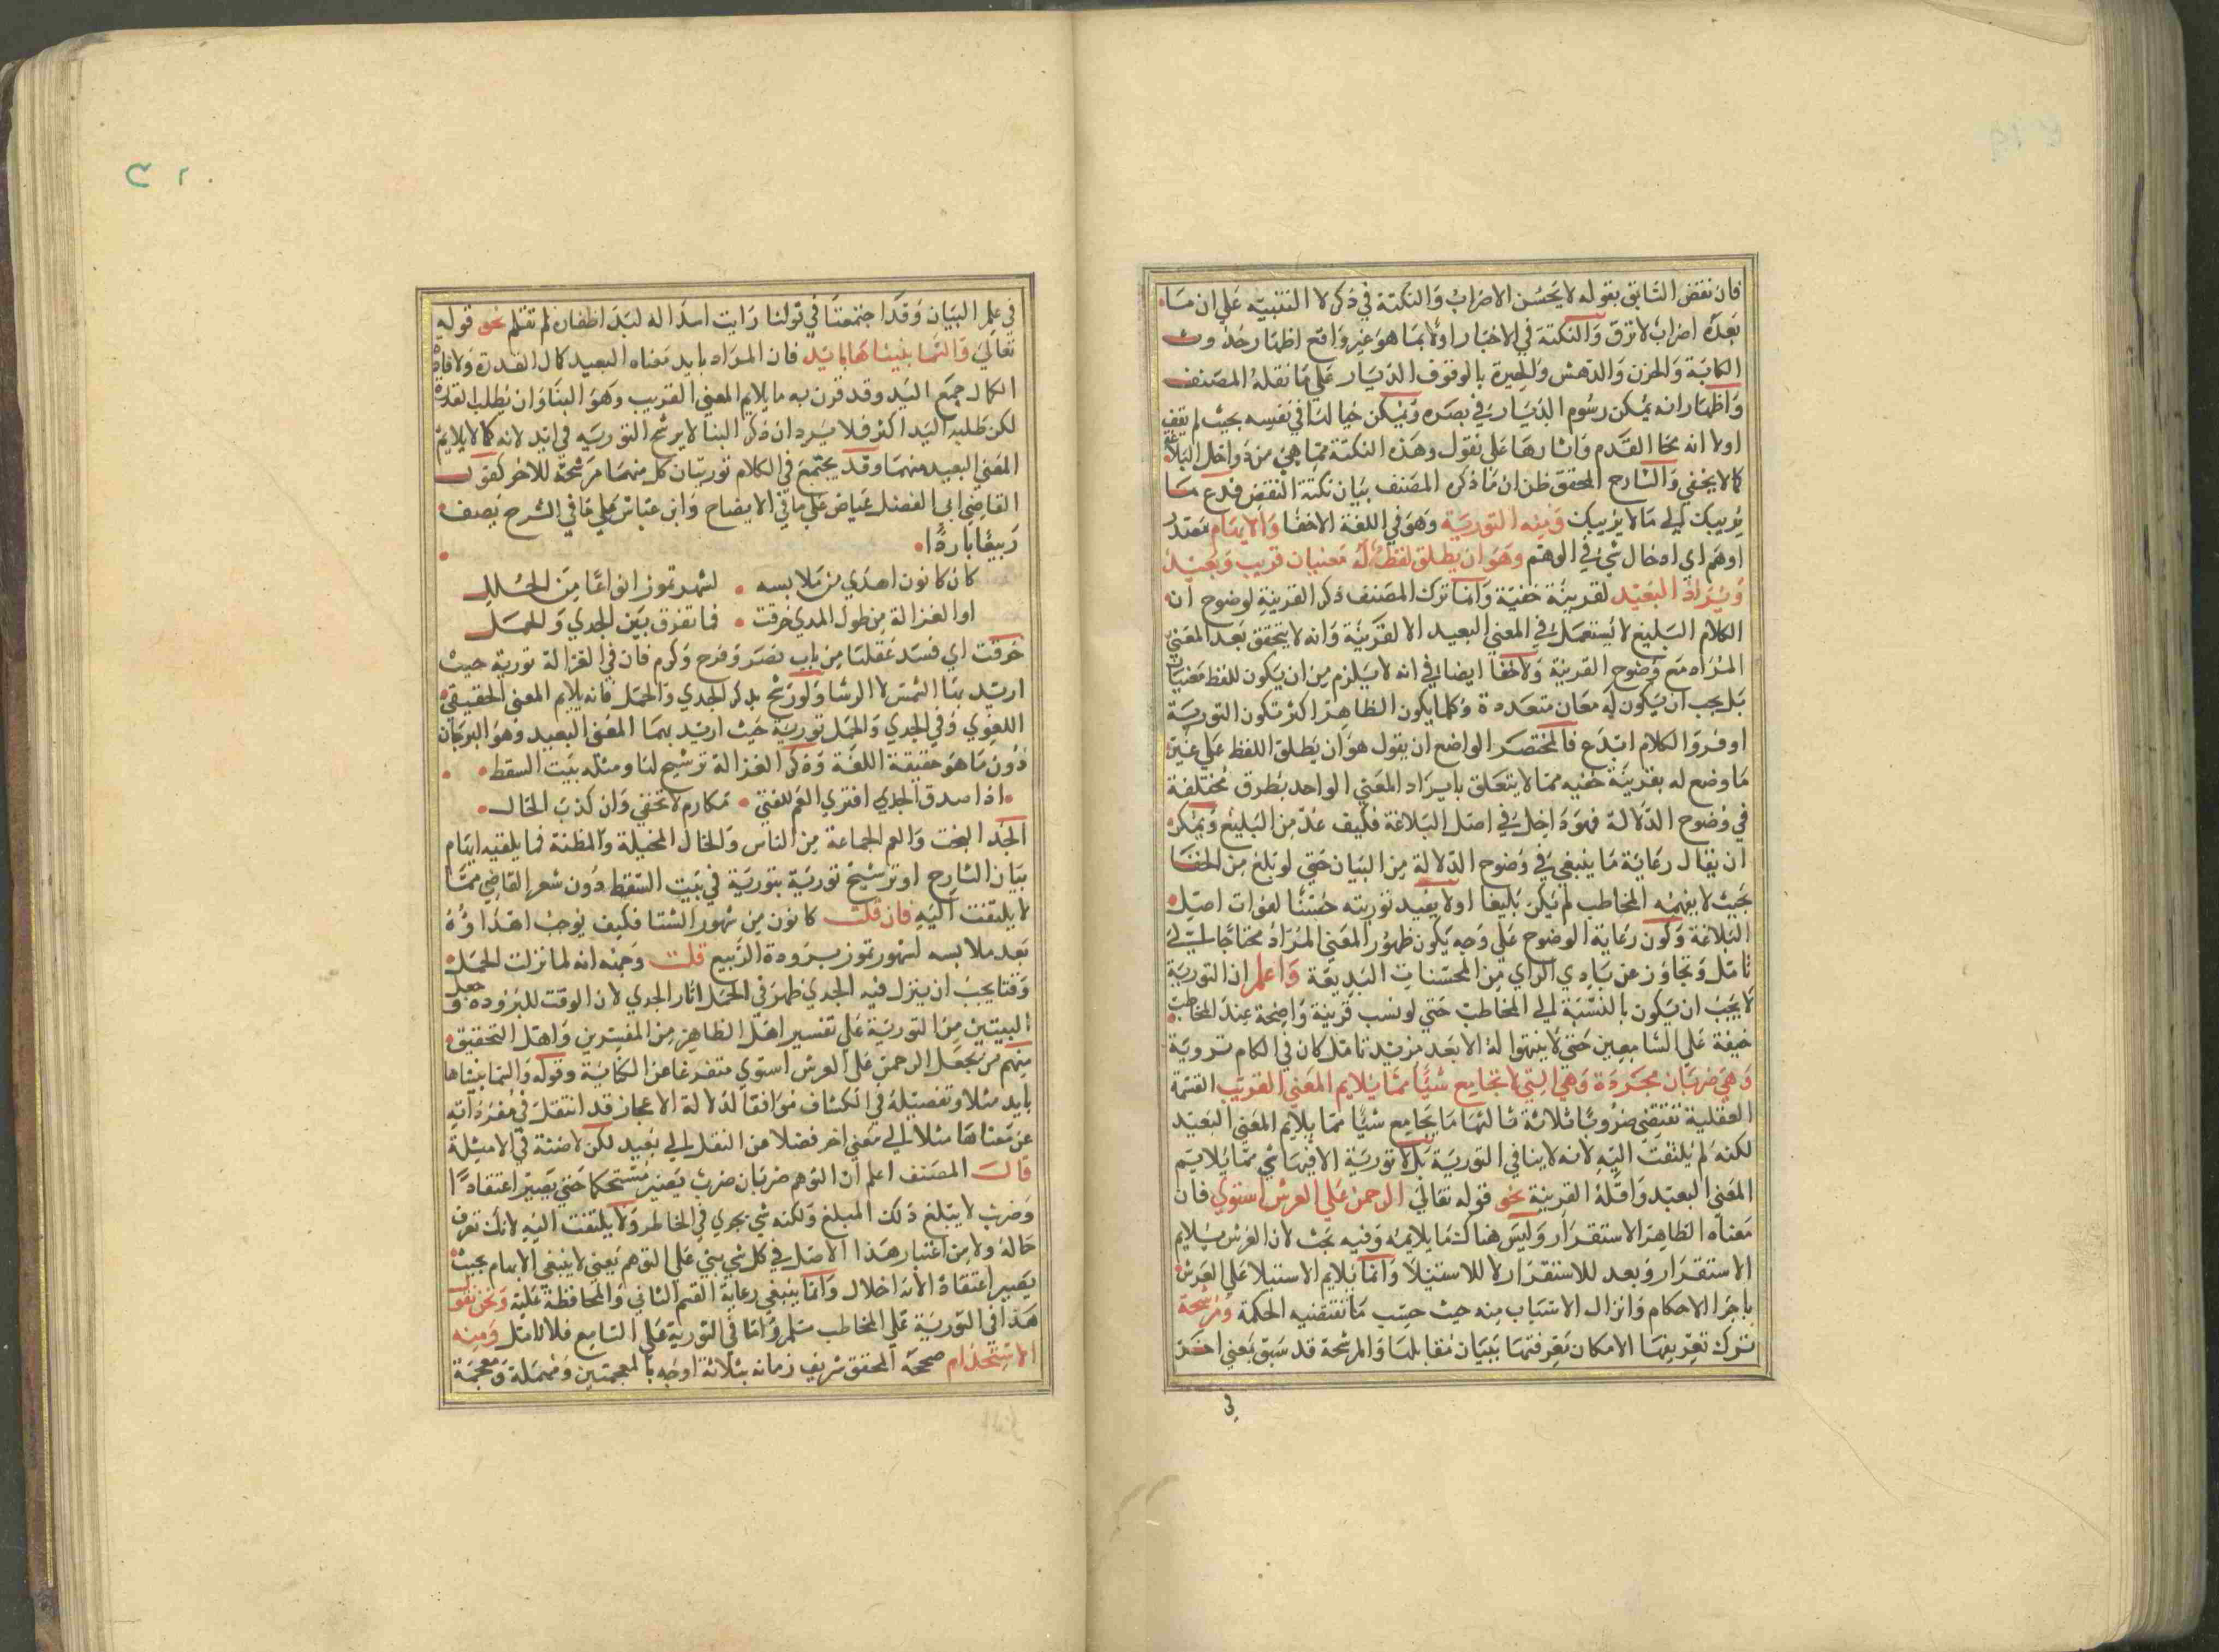 فان نقض السابق بقوله لا يحسن الاضراب والنكتة في ذكر لا التنبيه علي ان ما
بعده اضراب لا ترق والنكتة في الاخبار اولا بما هو غير واقع اظهار حدوث
الكابة والحزن والدهش والحيرة بالوقوف الديار علي ما نقله المصنف
واظهار انه يمكن رسوم الديار في بصره وتمكن خيالها في نفسه بحيث لم يقف
اولا انه محا القدم واثارها علي نقول وهذه النكتة مما هي من دواخل البلاغة
كما لا يخفي والشارح المحقق ظن ان ما ذكره المصنف بيان نكتة النقض فدع ما
يريبك الي ما لا يريبك ومنه التورية وهو في اللغة الاخفا والايهام مصدر
اوهم اي ادخال شيء في الوهم وهو ان يطلق لفظ له معنيان قريب وبعيد
ويراد البعيد لقرينة خفية وانما ترك المصنف ذكر القرينة لوضوح ان
الكلام البليغ لا يستعمل في المعني البعيد الا لقرينة وانه لا يتحقق بعد المعني
المراد مع وضوح القرينة ولا خفا ايضا في انه لا يلزم من ان يكون للفظ معنيان
بل يجب ان يكون له معان متعددة وكلما يكون الظاهر اكثر تكون التورية
اوفر والكلام ابدع فالمختصر الواضع ان يقول هو ان يطلق اللفظ علي غير
ما وضع له بقرينة خفيه مما لا يتعلق بايراد المعني الواحد بطرق مختلفة
في وضوح الدلالة فهو داخل في اصل البلاغة فكيف عد من البليغ ويمكن
ان يقال رعاية ما ينبغي في وضوح الدلالة من البيان حتي لو بلغ من الخفا
بحيث لا يفهمه المخاطب لم يكن بليغا اولا يفيد توريته حسنا لفوات اصل
البلاغة وكون رعاية الوضوح علي وجه يكون ظهور المعني المراد محتاجا الي
تامل وتجاوز عن بادي الراي من المحسنات البديعة واعلم ان التورية
لا يجب ان يكون بالنسبة الي المخاطب حتي لو نسب قرينة واضحة عند المخاطب
خيفة علي السامعين حتي لا ينتهوا له الا بعد مزيد تامل كان في الكام تروية
وهي ضربان مجردة وهي التي لا تجامع شيأ مما يلايم المعني القريب القسمة
العقلية تقتضي ضروبا ثلاثة ثالثها ما يجامع شيأ مما يلايم المعني البعيد
لكنه لم يلتفت اليه لانه لا ينافي التورية بل لا تورية الا فيها شي مما يلايم
المعني البعيد واقله القرينة نحو قوله تعالي الرحمن علي العرش استوي فان
معناه الظاهر الاستقرار وليس هناك ما يلايمه وفيه بحث لان العرش يلايم
الاستقرار وبعد للاستقرار لا للاستيلا وانما يلايم الاستيلا علي العرش
باجرا الاحكام وانزال الاسباب منه حيث حسب ما تقتضيه الحكمة ومرشحة
ترك تعريفها الامكان تعرفتها ببيان مقابلها والمرشحة قد سبق بمعني اخر
في
٣٢٠
في علم البيان وقد اجتمعتا في قولنا رايت اسدا له لبد اظفاره لم تقلم نحو قوله
تعالي والسما بنيناها بايد فان المراد بايد معناه البعيد كمال القدرة ولافادة
الكمال جمع اليد وقد قرن به ما يلايم المعني القريب وهو البنا وان يطلب القدرة
لكن طلبه اليد اكثر فلا يرد ان ذكر البنا لا يرشح التوريه في ايد لانه كما لا يلايم
المعني البعيد منهما وقد يجتمع في الكلام توريتان كل منهما مرشحة للاخر كقول
القاضي ابي الفضل عياض علي ما في الايضاح وابن عباش علي ما في الشرح يصف
ربيعا باردا
كان كانون اهدي من ملابسه لشهر تموز انواعا من الحلل
او الغزالة من طول المدي خرقت فما تفرق بين الجدي والحمل
خرقت اي فسد عقلها من باب نصر وفرح وكرم فان في الغزالة تورية حيث
اريد بها الشمس لا الرشا ولو رشح بذكر الجدي والحمل فانه يلايم المعني الحقيقي
اللغوي وفي الجدي والحمل تورية حيث اريد بهما المعني البعيد وهو البرجان
دون ما هو حقيقة اللغة وذكر الغزالة ترشيح لها ومثله بيت السقط
اذا صدق الجدي افتري العم للفتي مكارم لا تخفي وان كذب الخال
الجد البخت والعم الجماعة من الناس والخال المخيلة والمظنة فما يلقيه ايهام
بيان الشارح او ترشيح تورية بتورية في بيت السقط دون شعر القاضي مما
لا يلتفت اليه فان قلت كانون من شهور الشتا فكيف يوجب اهداؤه
بعد ملابسه لشهور تموز برودة الربيع قلت وجهه انه لما نزلت الحمل
وقتا يجب ان ينزل فيه الجدي ظهر في الحمل اثار الجدي لان الوقت للبرودة وجعل
البيتين من التورية علي تفسير اهل الظاهر من المفسرين واهل التحقيق
منهم من يجعل الرحمن علي العرش استوي متفرغا عن الكناية وقوله والسما بنيناها
بايد مثلا وتفصيله في الكشاف موافقا لدلالة الاعجاز قد انتقل في مفرداته
عن معناها مثلا الي معني اخر فضلا عن النقل الي بعيد لكن لا ضنة في الامثلة
قال المصنف اعلم ان التوهم ضربان ضرب يصير مستحكما حتي يصير اعتقادا
وضرب لا يبلغ ذلك المبلغ ولكنه شي يجري في الخاطر ولا يلتفت اليه لانك تعرف
حاله ولا من اعتبار هذا الاصل في كل شي يبني علي التوهم يعني لا ينبغي الابهام بحيث
يصير اعتقاد الانه اخلال وانما ينبغي رعاية القسم الثاني والمحافظة عليه ونحن نقول
هذا في التورية علي المخاطب مسلم واما في التورية علي السامع فلا تامل ومنه
الاستخدام صححه المحقق شريف زمانه بثلاثة اوجه بالمعجمتين ومهملة ومعجمة